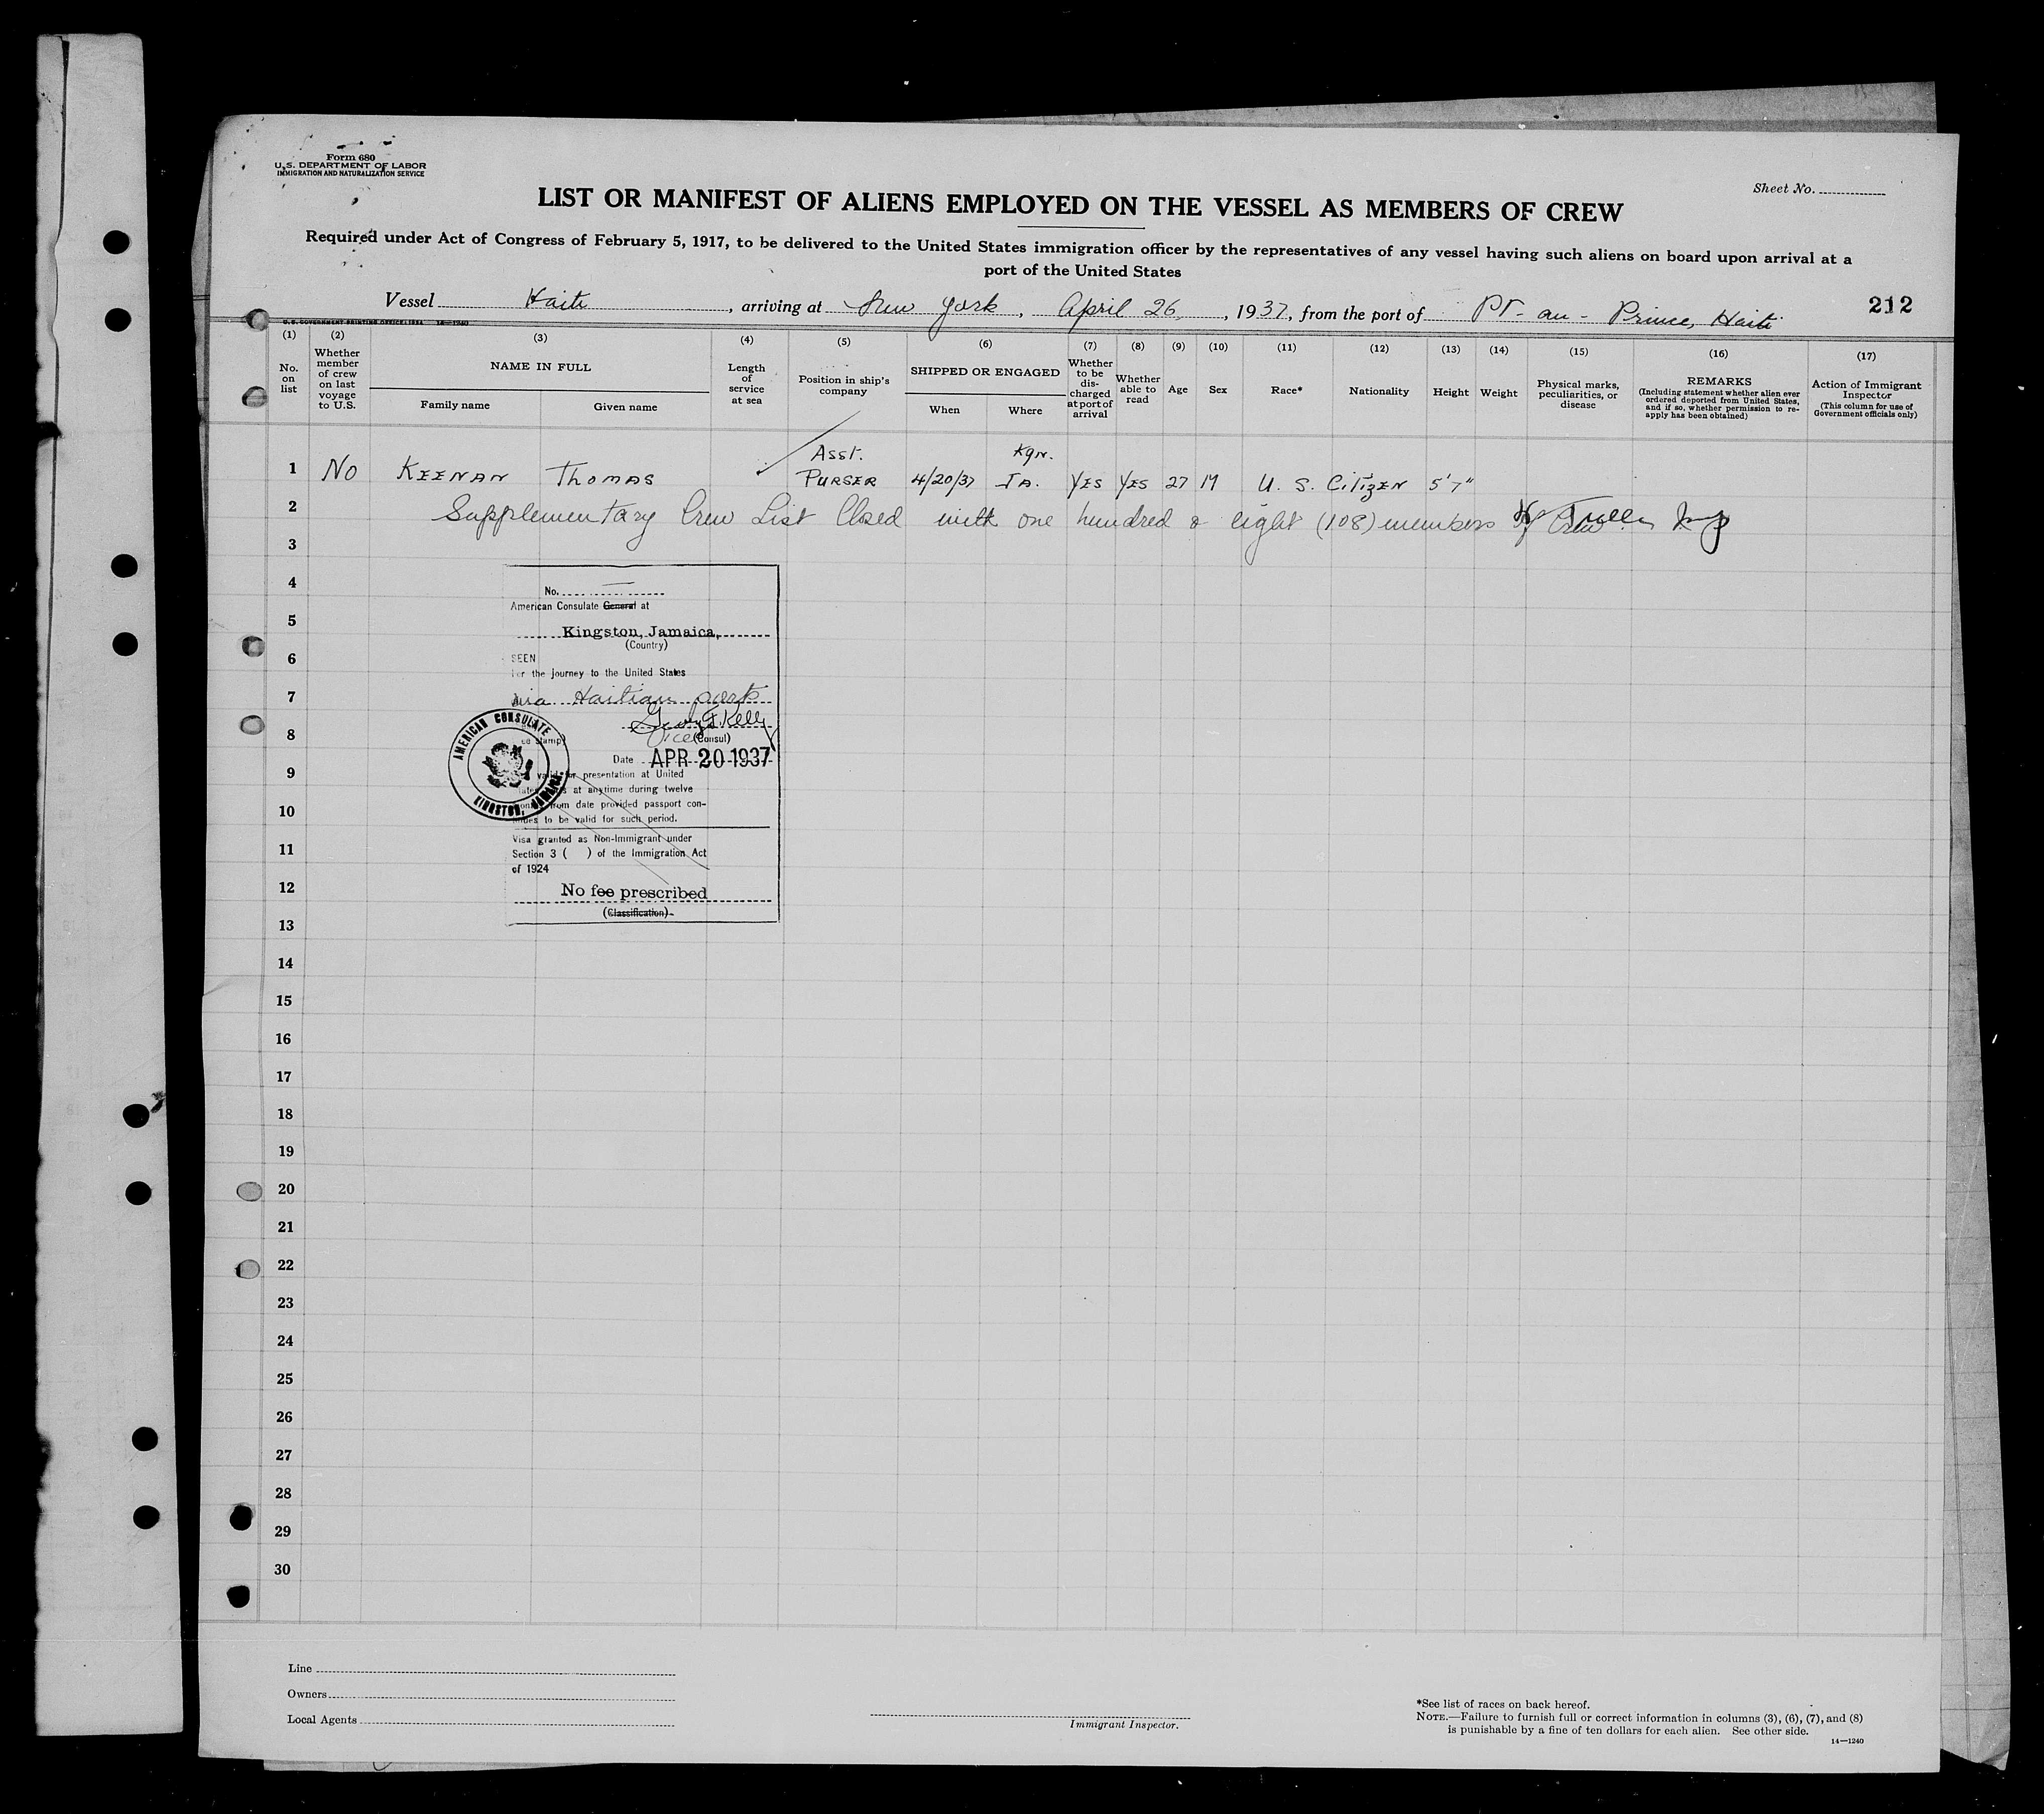 Form 680
U.S. DEPARTMENT OF LABOR
IMMIGRATION AND NATURALIZATION SERVICE
Sheet No.
LIST OR MANIFEST OF ALIENS EMPLOYED ON THE VESSEL AS MEMBERS OF CREW
Required under Act of Congress of February 5, 1917, to be delivered to the United States immigration officer by the representatives of any vessel having such aliens on board upon arrival at a
port of the United States
Vessel Haiti, arriving at New York, April 26, 1937, from the port of Pt-au-Prince, Haiti
212
U.S. GOVERNMENT PRINTING OFFICE: 1934 14—1240
(1) No. on list
(2) Whether member of crew on last voyage to U.S.
(3) NAME IN FULL
Family name Given name
(4) Length of service at sea
(5) Position in ship's company
(6) SHIPPED OR ENGAGED
When Where
(7) Whether to be discharged at port of arrival
(8) Whether able to read
(9) Age
(10) Sex
(11) Race*
(12) Nationality
(13) Height
(14) Weight
(15) Physical marks, peculiarities, or disease
(16) REMARKS
(Including statement whether alien ever ordered deported from United States, and if so, whether permission to re-apply has been obtained)
(17) Action of Immigrant Inspector
(This column for use of Government officials only)
1 No KEENAN THOMAS Asst. PURSER 4/20/37 Kgn. JA. YES YES 27 M U. S. CITIZEN 5'7"
2 Supplementary Crew List Closed with one hundred & eight (108) members of Crew
3
4
5
6
7
8
9
10
11
12
13
14
15
16
17
18
19
20
21
22
23
24
25
26
27
28
29
30
No.
American Consulate General at
Kingston, Jamaica,
(Country)
SEEN
For the journey to the United States
via Haitian ports
Kelly
Vice (Consul)
Date APR 20 1937
valid for presentation at United
at anytime during twelve
from date provided passport con-
to be valid for such period.
Visa granted as Non-Immigrant under
Section 3 ( ) of the Immigration Act
of 1924
No fee prescribed
(Classification)
AMERICAN CONSULATE
KINGSTON, JAMAICA
Line
Owners
Local Agents
Immigrant Inspector.
*See list of races on back hereof.
NOTE.—Failure to furnish full or correct information in columns (3), (6), (7), and (8)
is punishable by a fine of ten dollars for each alien. See other side.
14—1240